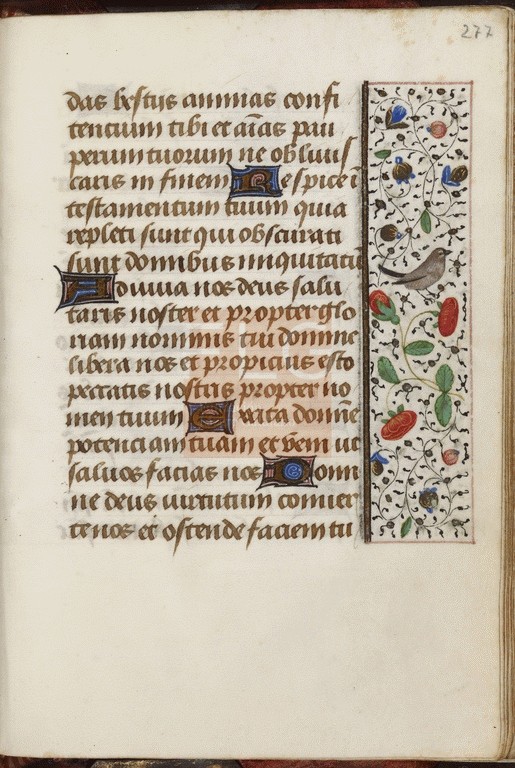 277
das bestiis animas confi
tentium tibi et aīas pau
perum tuorum ne obliuis
caris in finem Respice ī
testamentum tuum quia
repleti sunt qui obscurati
sunt domibus iniquitatū
Adiuua nos deus salu
taris noster et propter glo
riam nominis tui domine
libera nos et propicius esto
peccatis nostris propter no
men tuum Excita domīe
potenciam tuam et vēni ut
saluos facias nos Domi
ne deus uirtutum conuer
te nos et ostende faciem tu